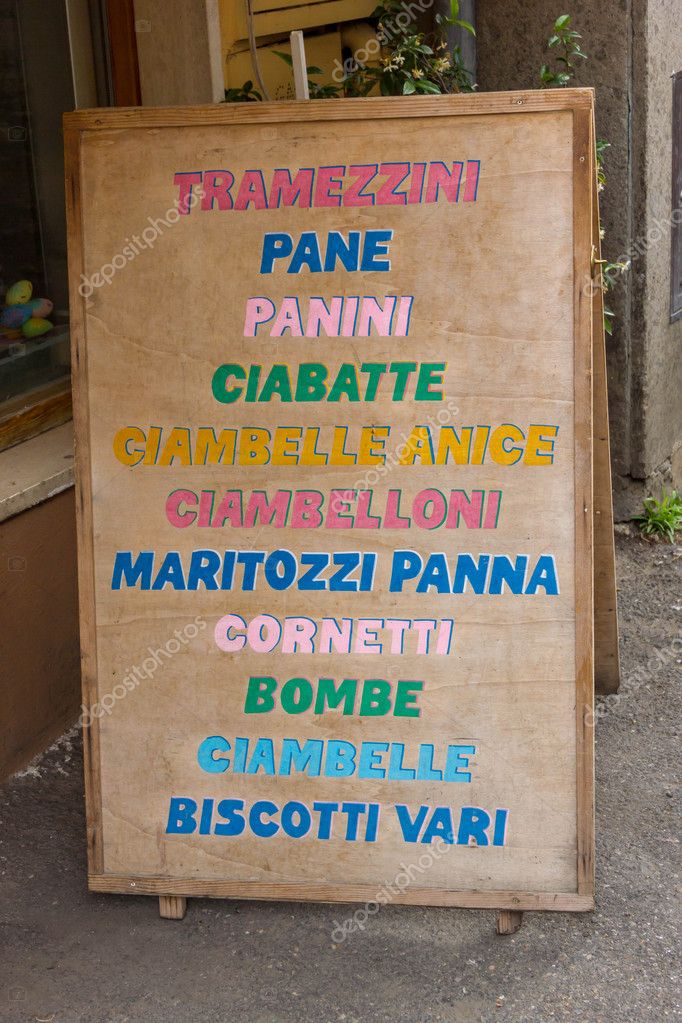 TRAMEZZINI
PANE
PANINI
CIABATTE
CIAMBELLE ANICE
CIAMBELLONI
MARITOZZI PANNA
CORNETTI
BOMBE
CIAMBELLE
BISCOTTI VARI
depositphotos
depositphotos
depositphotos
depositphotos
depositphotos
depositphotos
depositphotos
depositphotos